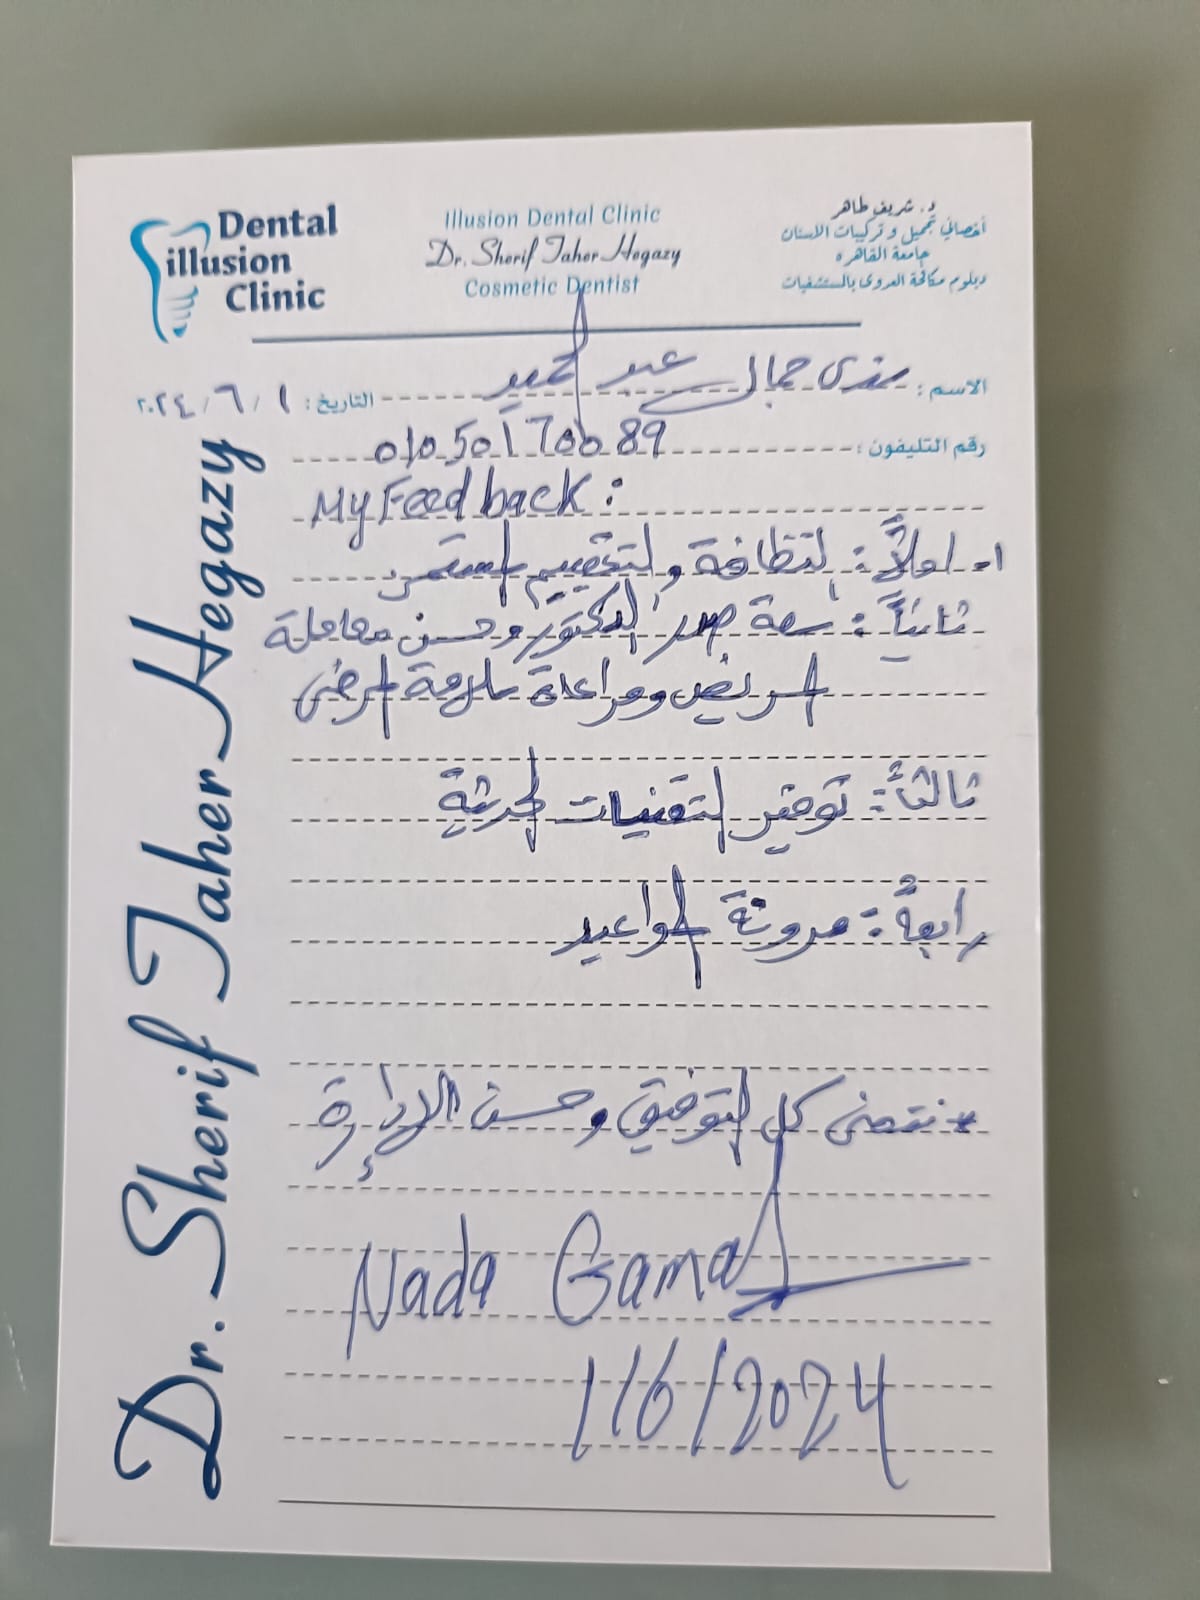 Dental
illusion
Clinic
Illusion Dental Clinic
Dr. Sherif Taher Hegazy
Cosmetic Dentist
د. شريف طاهر
أخصائي تجميل و تركيبات الاسنان
جامعة القاهره
دبلوم مكافحة العدوى بالمستشفيات
الاسم : ندى جمال عبد الحميد
التاريخ : ١ / ٦ / ٢٠٢٤
رقم التليفون : 01050170089
My Feedback :
١- اولاً : النظافة والتعقيم المستمر
ثانياً : سعة صدر الدكتور وحسن معاملة
المريض ومراعاة سلامة المرضى
ثالثاً : توفير التقنيات الحديثة
رابعاً : مرونة المواعيد
* نتمنى كل التوفيق وحسن الإدارة
Nada Gamal
1/6/2024
Dr. Sherif Taher Hegazy